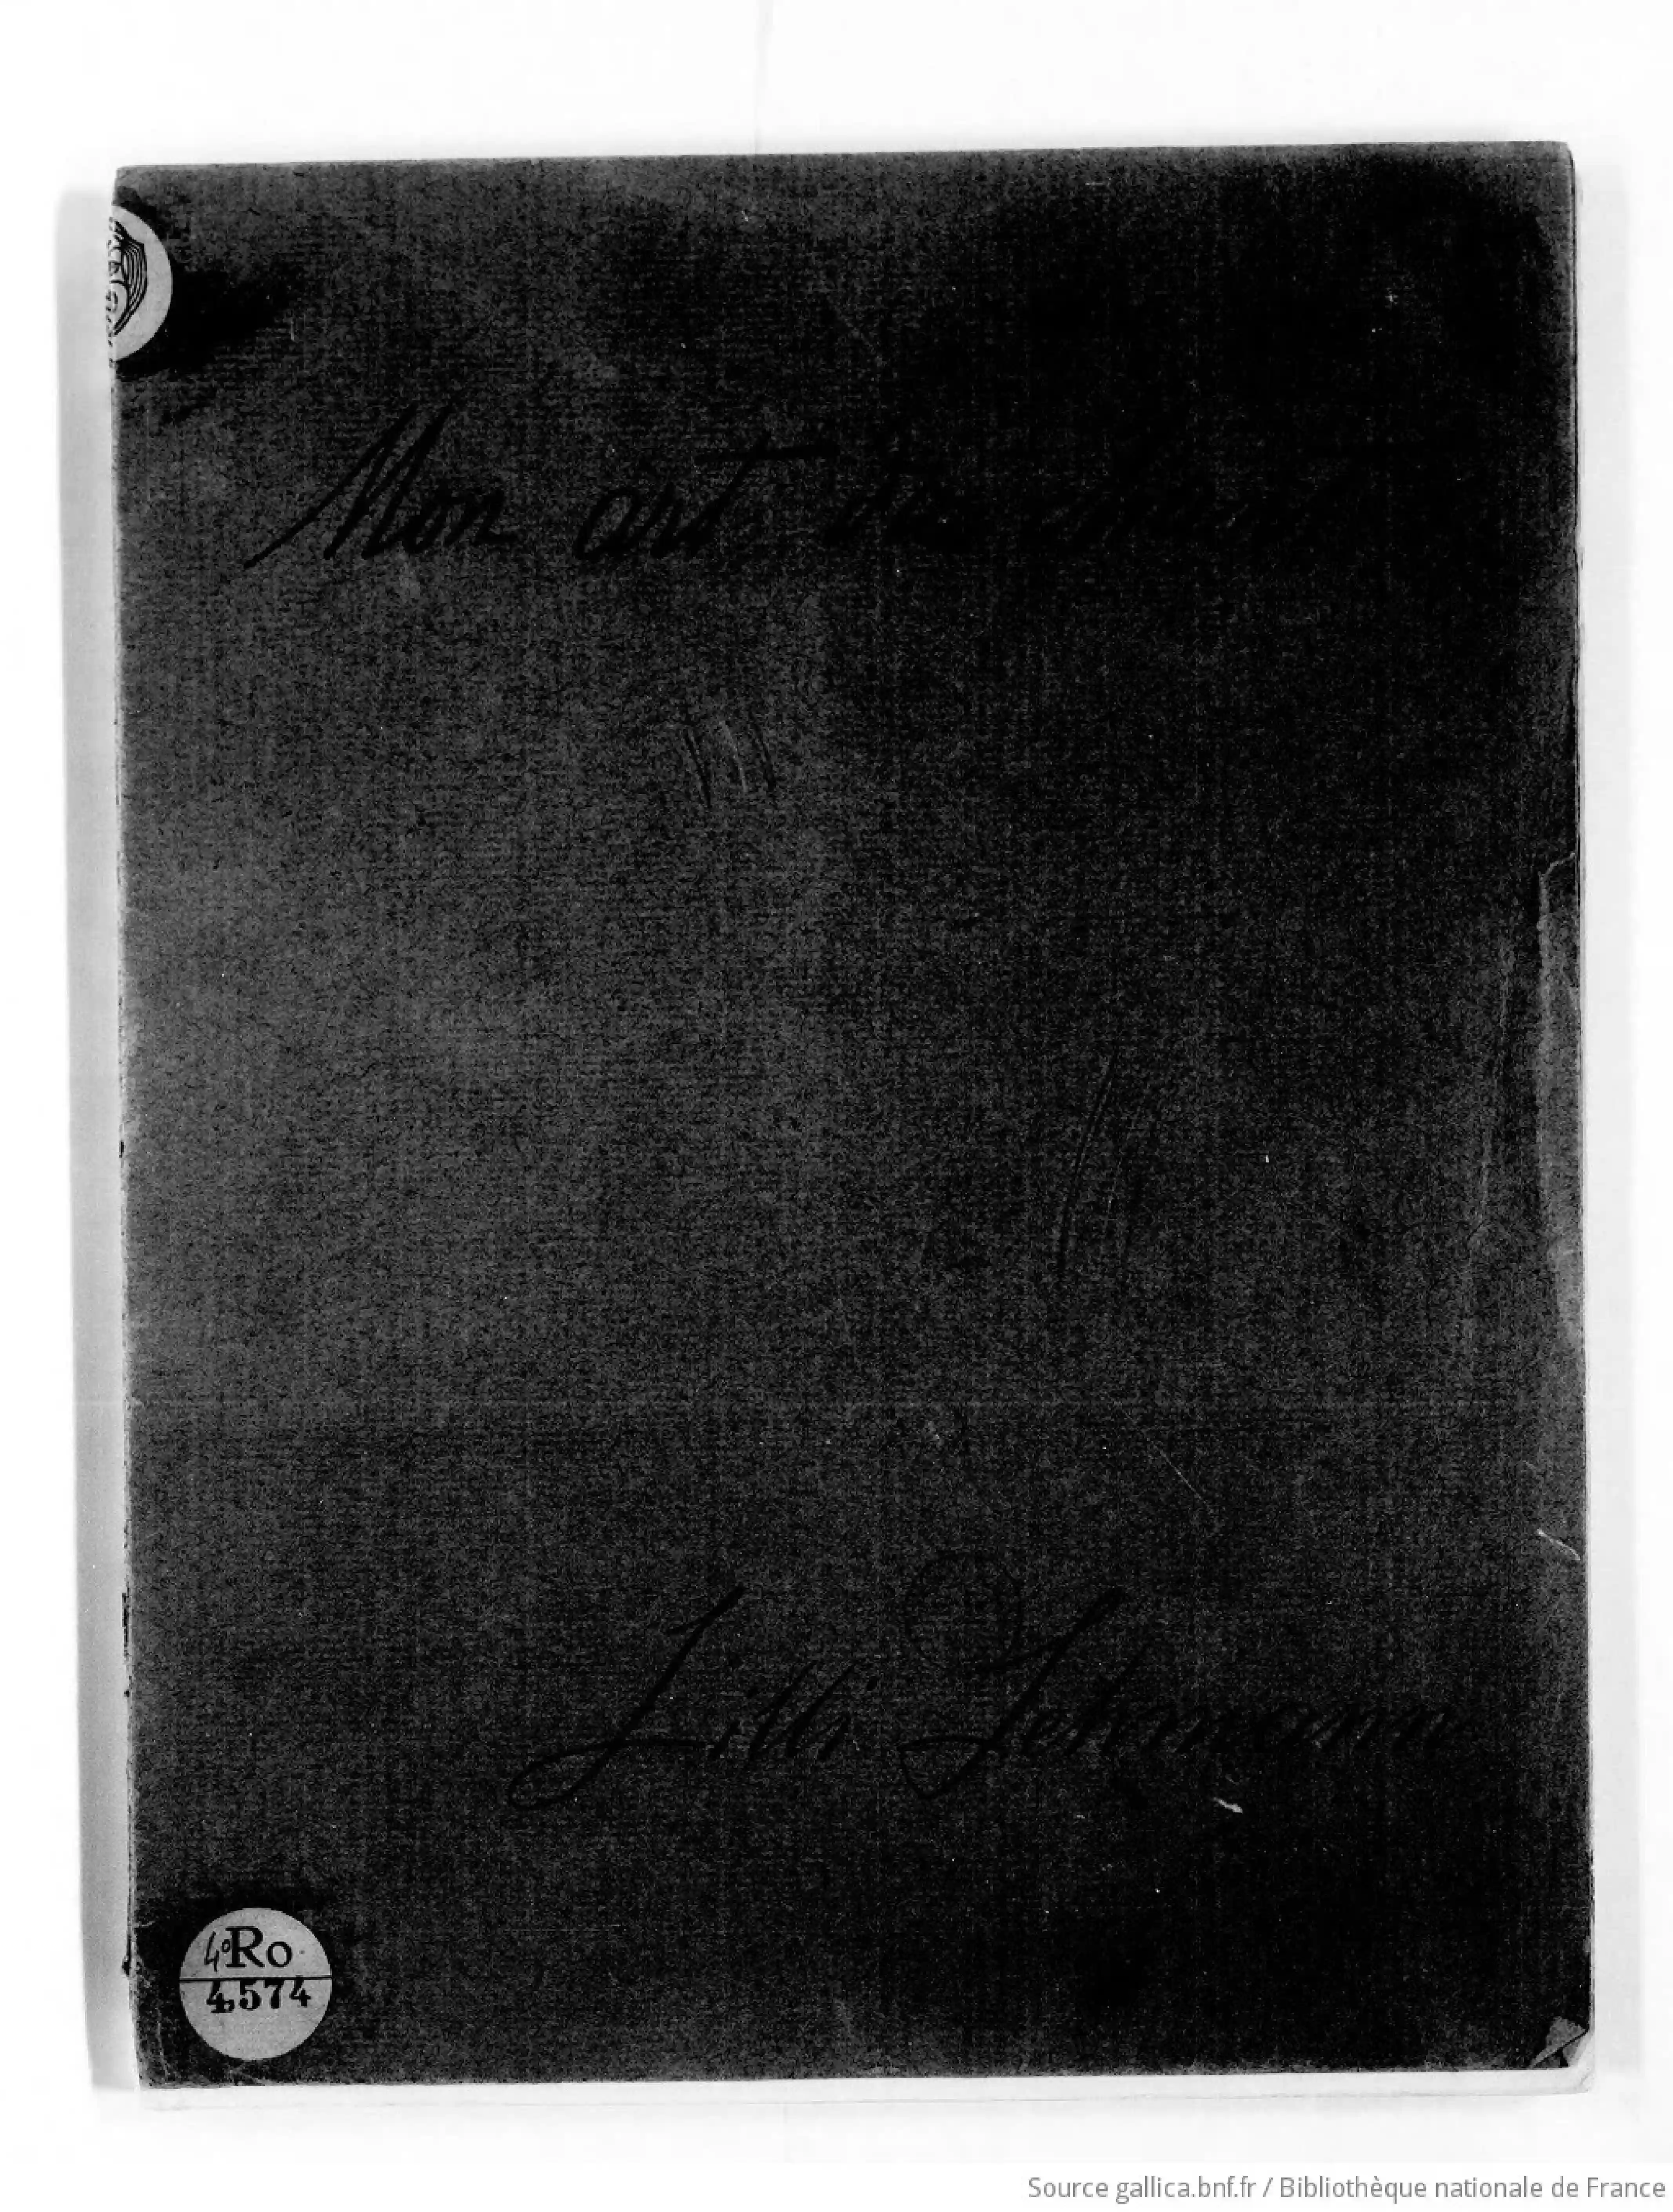 Mon art du chant
Lilli Lehmann
4º Ro
4574
Source gallica.bnf.fr / Bibliothèque nationale de France